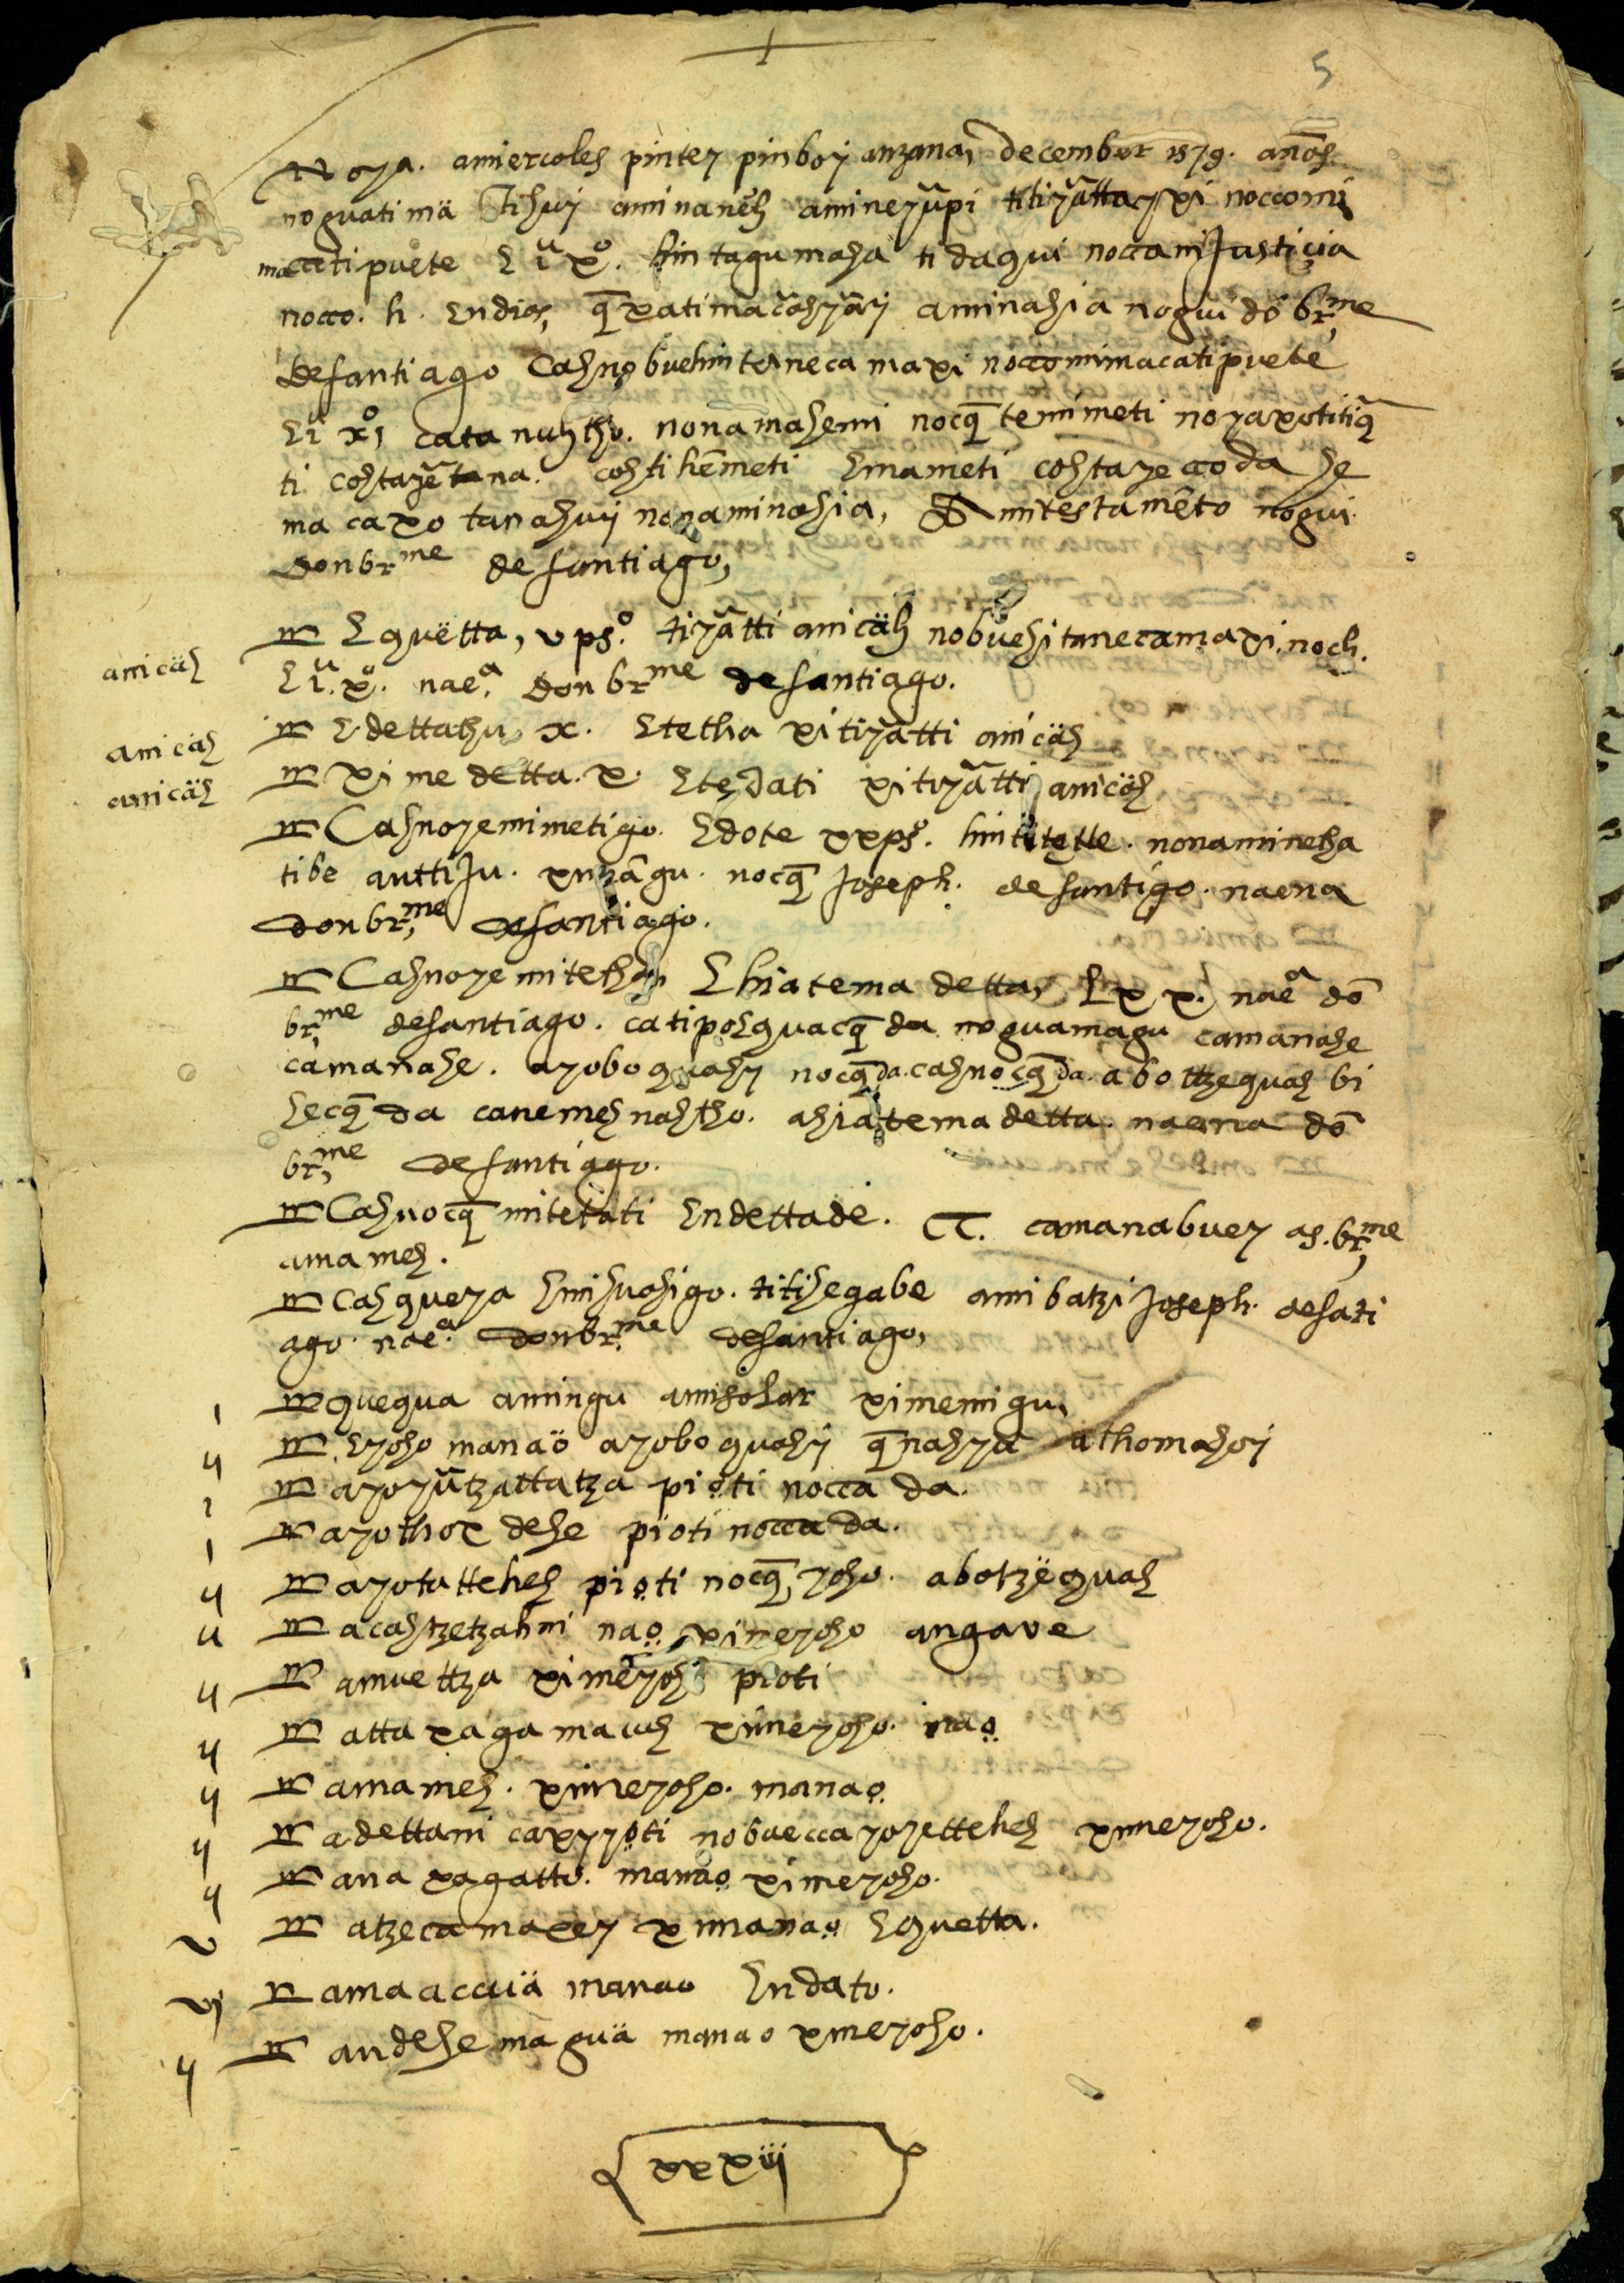 5
Noya. amiercoles pintey pinboy anzana, december 1579. anõs.
noguatimä Jihuy aminanëh amineyũpi titiyãttayxi noccomi
maccatipuẽte xº. hintagumaha tidagui noccaniJusticia
nocco. h. Endios, q̃xatimacãhyãy aminahia nogui dõ br,me
desantiago Cahnobuehintaneca maxi noccomimacatipuete
xº, cata nuhtho. nonamahemi nocq̃ temimeti noyaxotitiq̃
ti cohtayẽtana. cohtihẽmeti Emameti cohtayeccoda he
ma caxo tanahuy nonaminahia, Amitestamẽto nogui.
Donbrme desantiago,
Eguëtta, v psº. tiyãtti amicäh nobuehitanecamaxi. noch.
amicäh
xº. naeª. Don brme desantiago.
Edettathu x. Etetha xitiyãtti amicäh
amicäh
Ximedetta. x. Etedati xitiyãtti amicäh
amicäh
Cahnoyemimetigo. Edote xxpsº. hintitette. nonaminetha
tibe autti Ju. xinãngu. nocq̃ Joseph. desantigo. naena
donbr,me desantiago.
Cahnoyemitetha, Ehiatema detta, Exx. naeª dõ
br,me desantiago. catipohguacq̃ da noguamagu camanahe
camanahe. ayoboguahy nocq̃da. cahnocq̃da. abottzeguah bi
hecq̃da canemehnahtho. ahiatema detta. naena dõ
br,me desantiago.
Cahnocq̃ mitetati Endettade. CC. camanabuey as. br,me
amameh.
Cahgueya himihuahigo. titihegabe amibatzi Joseph. desati
ago. naeª. donbr,me desantiago,
ı guegua amingu amisolar ximemigu,
ıı Eyoho manaö ayoboguahy q̃nahya athomahoy
ı ayoyũtzattatza pioti nocca da.
ı ayothox dehe pioti nocca da.
ıı ayotatteheh pioti nocq̃, yoho. abotzëguah
ıı acahtzetzahni nao ximeyoho angave
ıı amuettza ximeyoho pioti
ıı attaxagamacuh ximeyoho. nao
ıı amameh. ximeyoho. manao
ıı adettani caxyyoti nobueccayoyetteheh ximeyoho.
ıı anaxagatto. manao ximeyoho.
v atzecamaxey ximanao Eguetta.
vj amaacaüä manao Endato.
ıı andehemaguä manao ximeyoho.
xxxiij